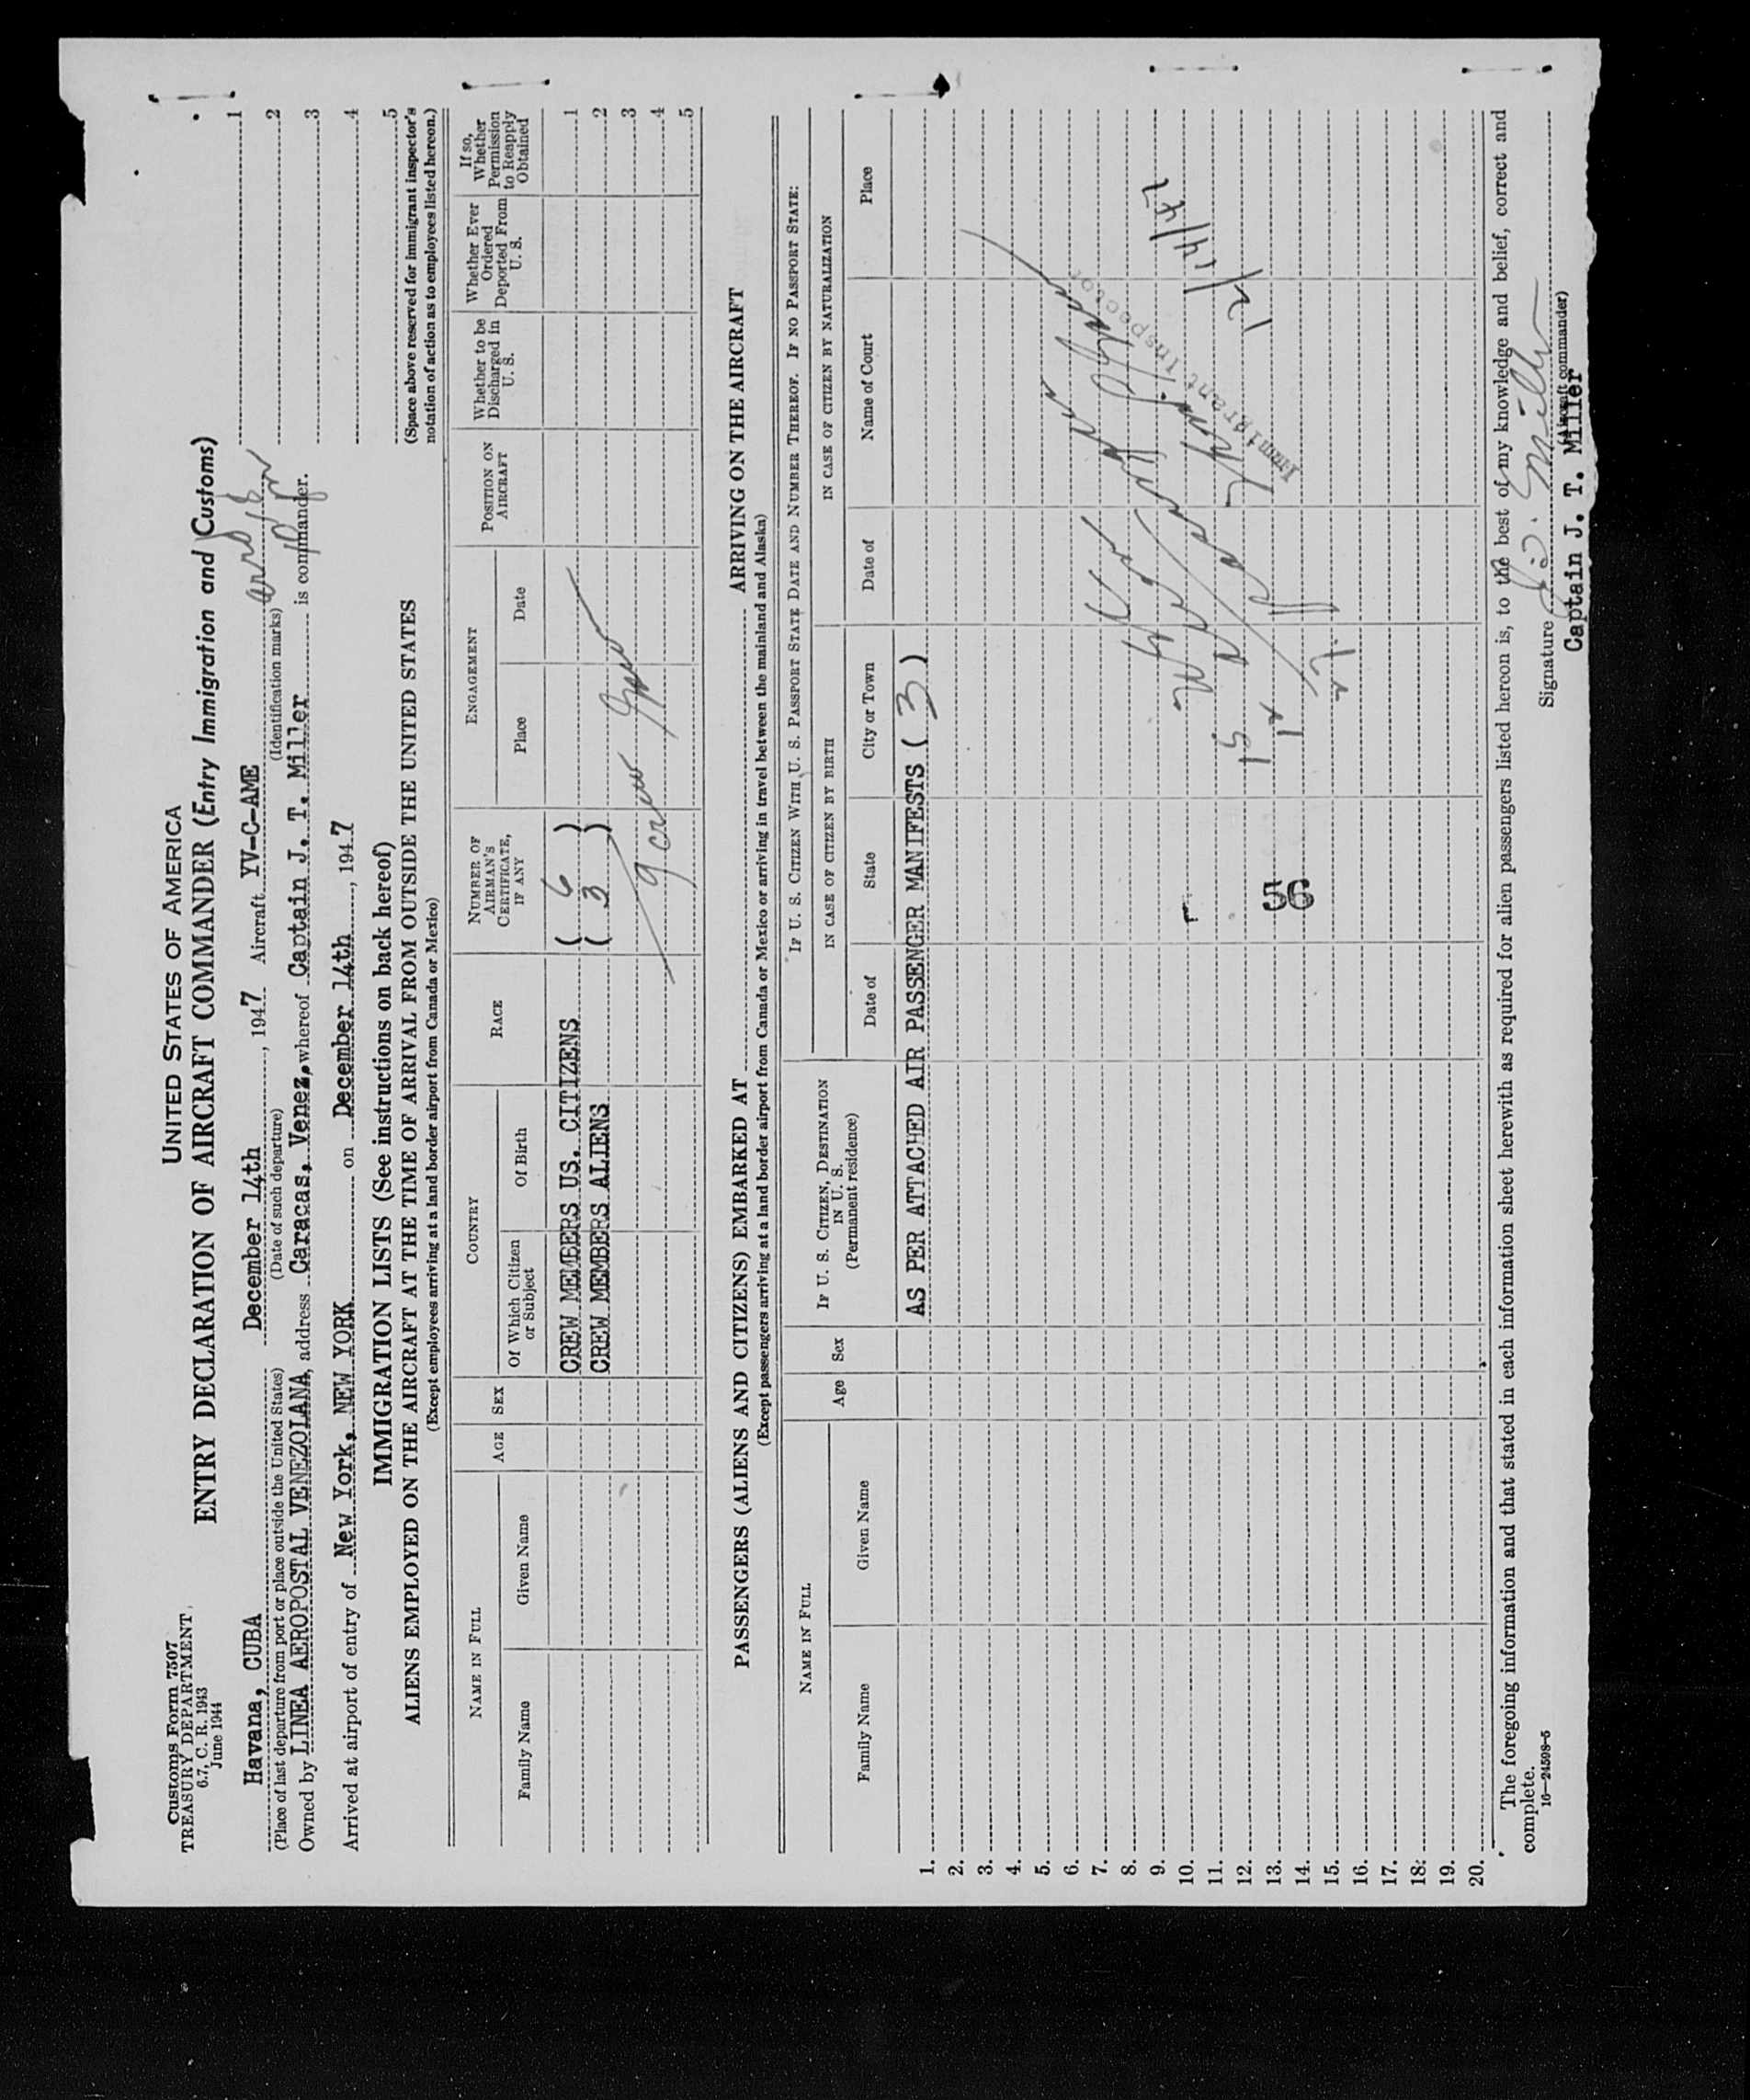 Customs Form 7507
TREASURY DEPARTMENT
6.7, C. R. 1943
June 1944
UNITED STATES OF AMERICA
ENTRY DECLARATION OF AIRCRAFT COMMANDER (Entry Immigration and Customs)
Havana, CUBA December 14th, 1947 Aircraft YV-C-AME
(Place of last departure from port or place outside the United States) (Date of such departure) (Identification marks)
Owned by LINEA AEROPOSTAL VENEZOLANA, address Caracas, Venez, whereof Captain J. T. Miller is commander.
Arrived at airport of entry of New York, NEW YORK on December 14th, 1947
1
2
3
4
5
(Space above reserved for immigrant inspector's notation of action as to employees listed hereon.)
IMMIGRATION LISTS (See instructions on back hereof)
ALIENS EMPLOYED ON THE AIRCRAFT AT THE TIME OF ARRIVAL FROM OUTSIDE THE UNITED STATES
(Except employees arriving at a land border airport from Canada or Mexico)
NAME IN FULL
Family Name
Given Name
AGE
SEX
COUNTRY
Of Which Citizen or Subject
Of Birth
RACE
NUMBER OF AIRMAN'S CERTIFICATE, IF ANY
ENGAGEMENT
Place
Date
POSITION ON AIRCRAFT
Whether to be Discharged in U. S.
Whether Ever Ordered Deported From U. S.
If so, Whether Permission to Reapply Obtained
CREW MEMBERS US. CITIZENS ( 6 ) 1
CREW MEMBERS ALIENS ( 3 ) 2
3
9 crew 4
5
PASSENGERS (ALIENS AND CITIZENS) EMBARKED AT ARRIVING ON THE AIRCRAFT
(Except passengers arriving at a land border airport from Canada or Mexico or arriving in travel between the mainland and Alaska)
NAME IN FULL
Family Name
Given Name
Age
Sex
IF U. S. CITIZEN, DESTINATION IN U. S.
(Permanent residence)
IF U. S. CITIZEN WITH U. S. PASSPORT STATE DATE AND NUMBER THEREOF. IF NO PASSPORT STATE:
IN CASE OF CITIZEN BY BIRTH
Date of
State
City or Town
IN CASE OF CITIZEN BY NATURALIZATION
Date of
Name of Court
Place
1. AS PER ATTACHED AIR PASSENGER MANIFESTS ( 3 )
2.
3.
4.
5.
6.
7.
8.
9.
10.
11.
12.
13.
14.
15.
16.
17.
18.
19.
20.
Immigrant Inspector
12/14/47
15
56
The foregoing information and that stated in each information sheet herewith as required for alien passengers listed hereon is, to the best of my knowledge and belief, correct and
complete.
16—24598-5
Signature J. T. Miller
(Aircraft commander)
Captain J. T. Miller